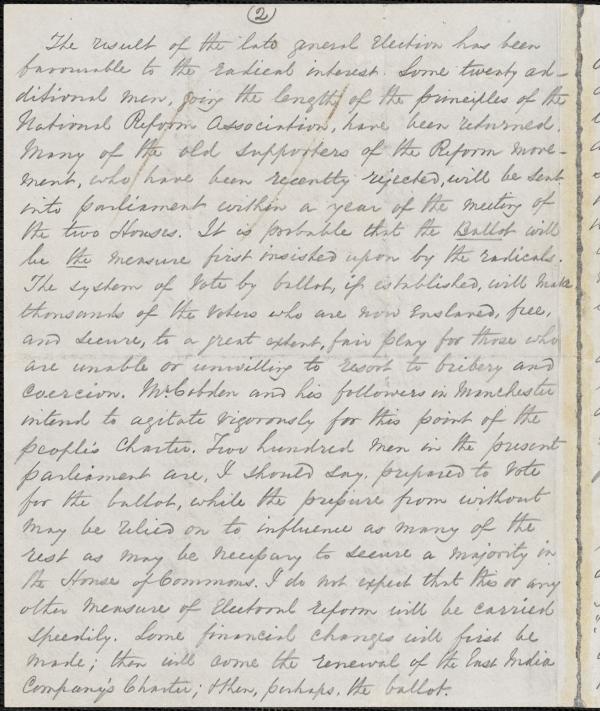 (2)
The result of the late general Election has been
favourable to the radical interest. Some twenty ad-
ditional men, going the length of the principles of the
National Reform Association, have been returned.
Many of the old supporters of the Reform move-
ment, who have been recently rejected, will be sent
into parliament within a year of the meeting of
the two Houses. It is probable that the Ballot will
be the measure first insisted upon by the radicals.
The system of Vote by ballot, if established, will make
thousands of the Voters who are now Enslaved, free,
and secure, to a great extent, fair play for those who
are unable or unwilling to resort to bribery and
Coercion. Mr. Cobden and his followers in Manchester
intend to agitate vigorously for this point of the
people's Charter. Two hundred men in the present
parliament are, I should say, prepared to Vote
for the ballot, while the pressure from without
may be relied on to influence as many of the
rest as may be necessary to secure a majority in
the House of Commons. I do not expect that this or any
other measure of Electoral reform will be carried
Speedily. Some financial changes will first be
made; then will come the renewal of the East India
Company's Charter; then, perhaps, the ballot.